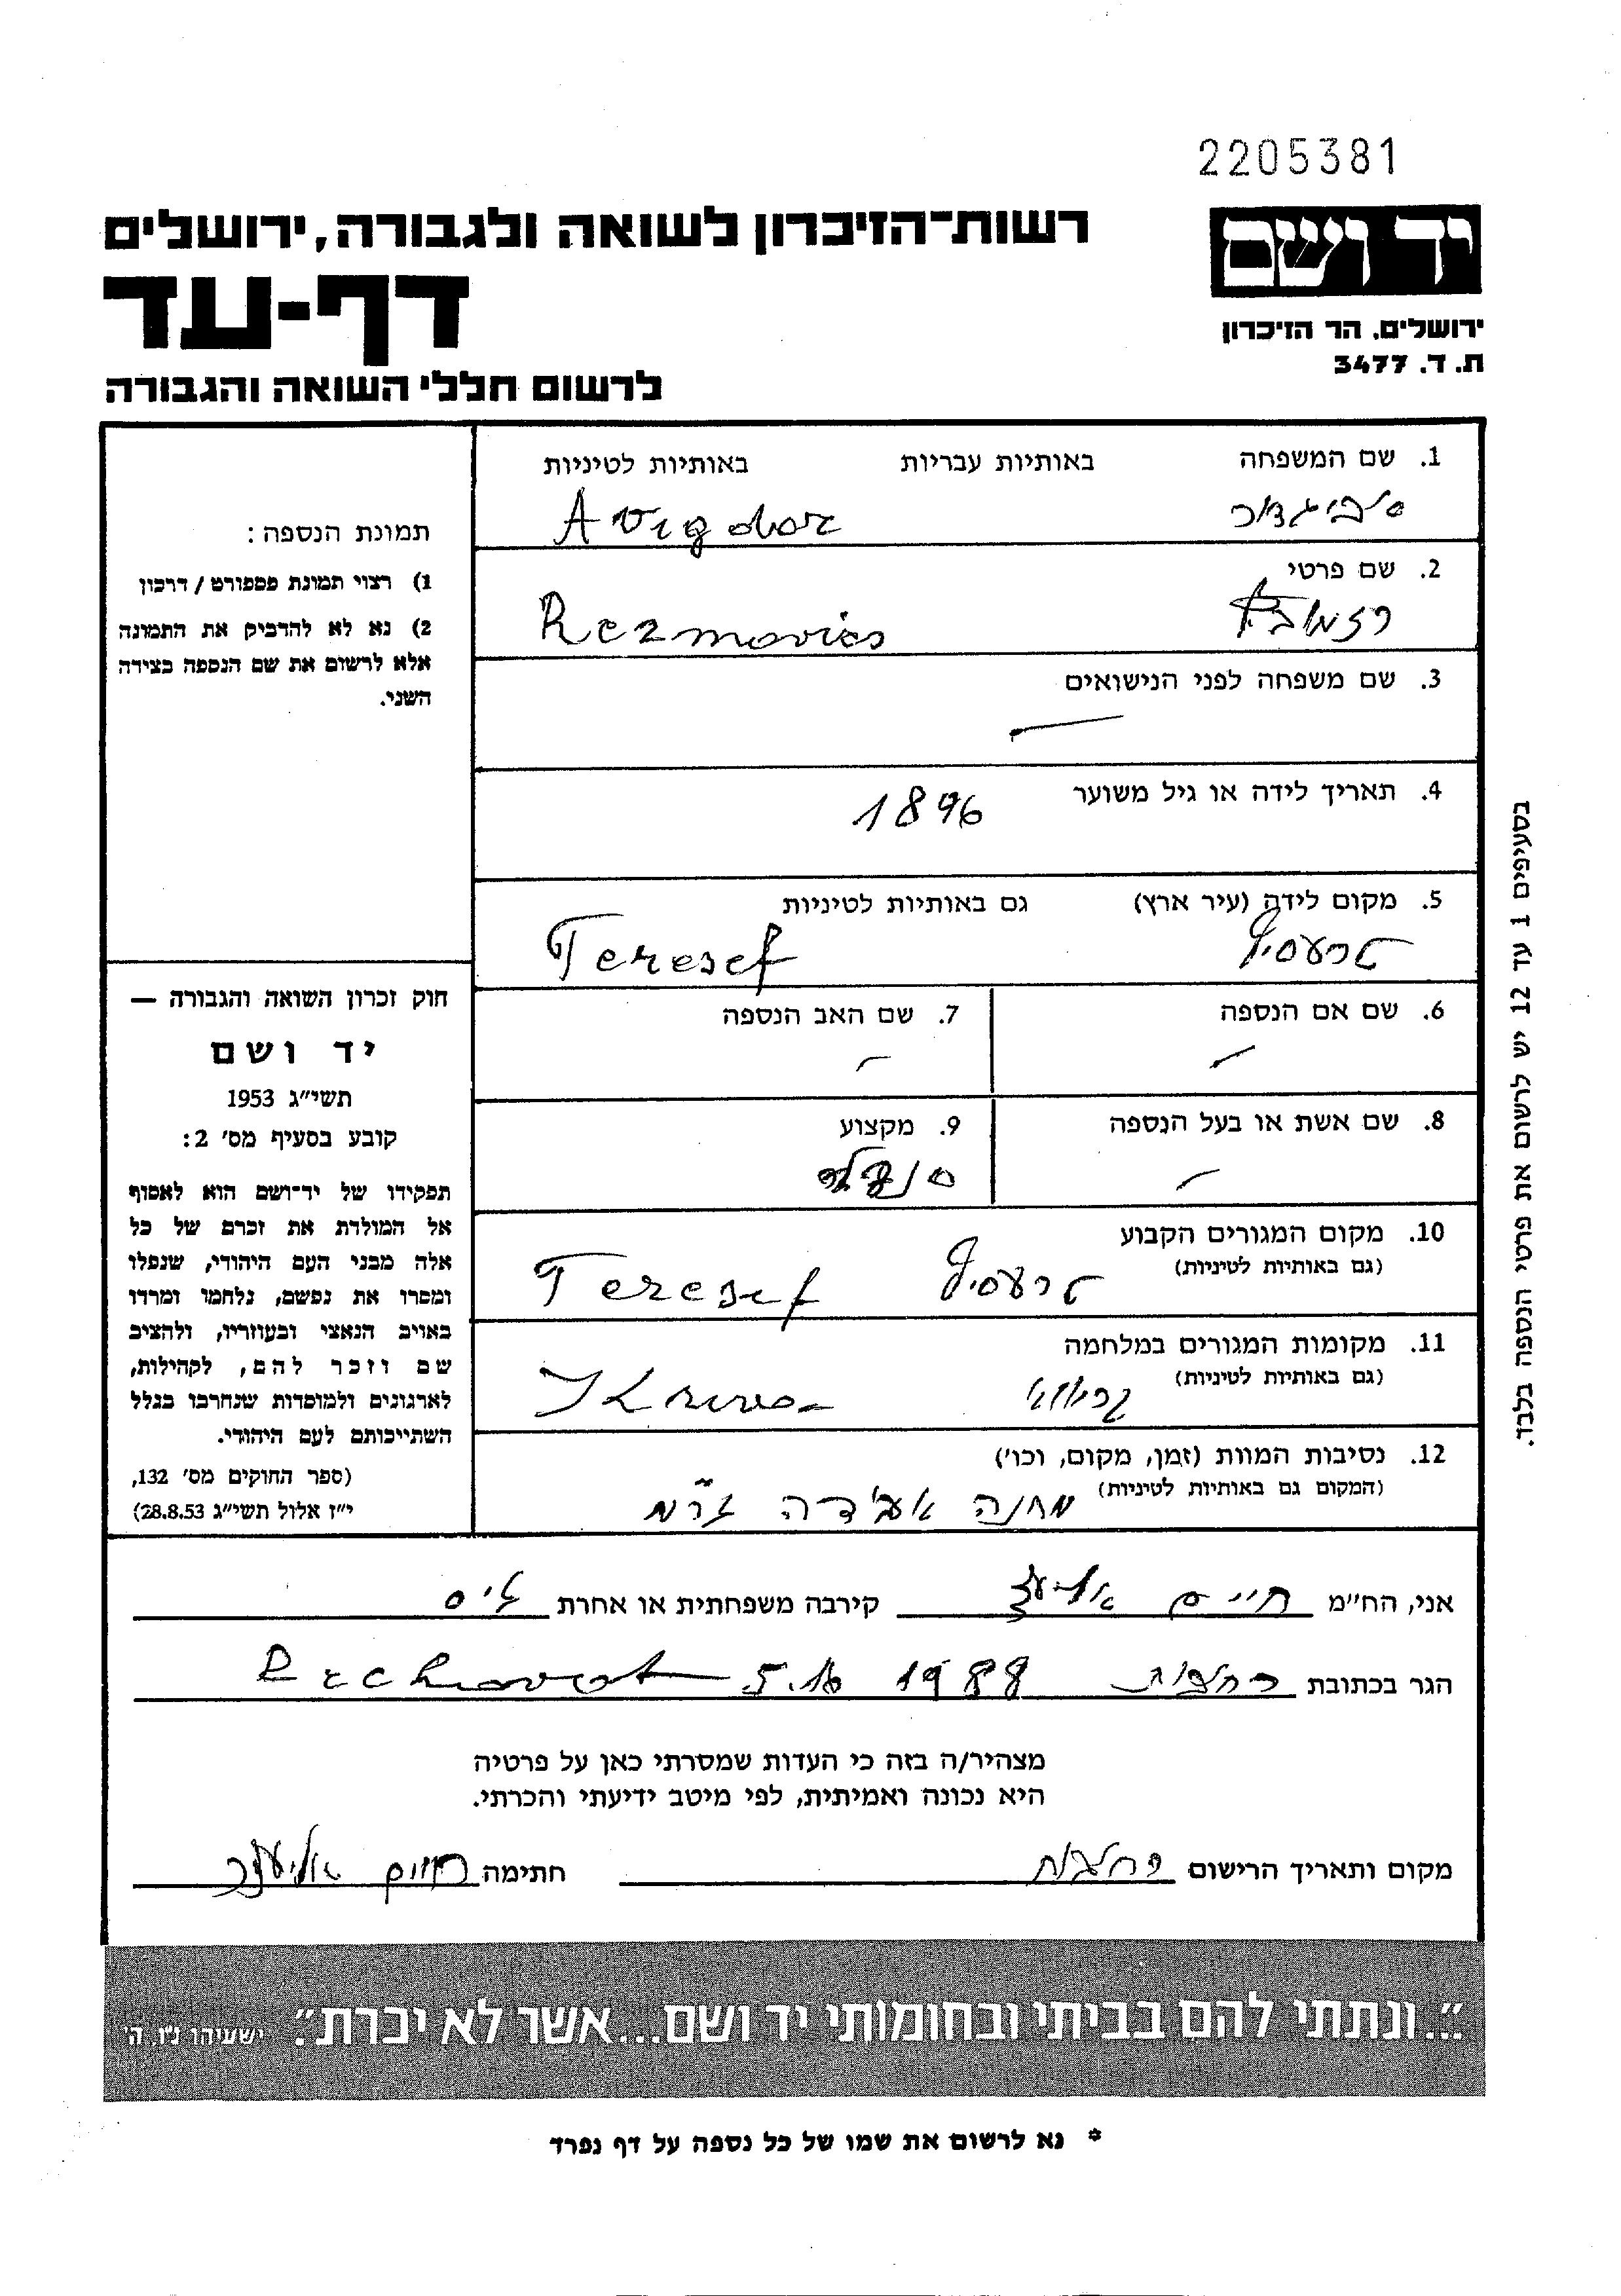 2205381
יד ושם
ירושלים, הר הזיכרון
ת. ד. 3477
רשות-הזיכרון לשואה ולגבורה, ירושלים
דף-עד
לרשום חללי השואה והגבורה
1. שם המשפחה באותיות עבריות באותיות לטיניות
Avigdor
2. שם פרטי
Rezmovics
3. שם משפחה לפני הנישואים
4. תאריך לידה או גיל משוער 1896
5. מקום לידה (עיר ארץ) גם באותיות לטיניות
טרעסיף Teresef
6. שם אם הנספה 7. שם האב הנספה
8. שם אשת או בעל הנספה 9. מקצוע
סנדלר
10. מקום המגורים הקבוע
(גם באותיות לטיניות)
טרעסיף Teresef
11. מקומות המגורים במלחמה
(גם באותיות לטיניות)
12. נסיבות המוות (זמן, מקום, וכו')
(המקום גם באותיות לטיניות)
מחנה עבודה
תמונת הנספה:
1) רצוי תמונת פספורט / דרכון
2) נא לא להדביק את התמונה
אלא לרשום את שם הנספה בצידה
השני.
חוק זכרון השואה והגבורה —
יד ושם
תשי״ג 1953
קובע בסעיף מס׳ 2:
תפקידו של יד-ושם הוא לאסוף
אל המולדת את זכרם של כל
אלה מבני העם היהודי, שנפלו
ומסרו את נפשם, נלחמו ומרדו
באויב הנאצי ובעוזריו, ולהציב
שם וזכר להם, לקהילות,
לארגונים ולמוסדות שנחרבו בגלל
השתייכותם לעם היהודי.
(ספר החוקים מס׳ 132,
י״ז אלול תשי״ג 28.8.53)
בסעיפים 1 עד 12 יש לרשום את פרטי הנספה בלבד.
אני, הח״מ חיים קירבה משפחתית או אחרת גיס
הגר בכתובת רחובות 1988 5.16 Rechovot
מצהיר/ה בזה כי העדות שמסרתי כאן על פרטיה
היא נכונה ואמיתית, לפי מיטב ידיעתי והכרתי.
מקום ותאריך הרישום רחובות חתימה חיים
״...ונתתי להם בביתי ובחומותי יד ושם...אשר לא יכרת״. ישעיהו נ״ו, ה׳
* נא לרשום את שמו של כל נספה על דף נפרד